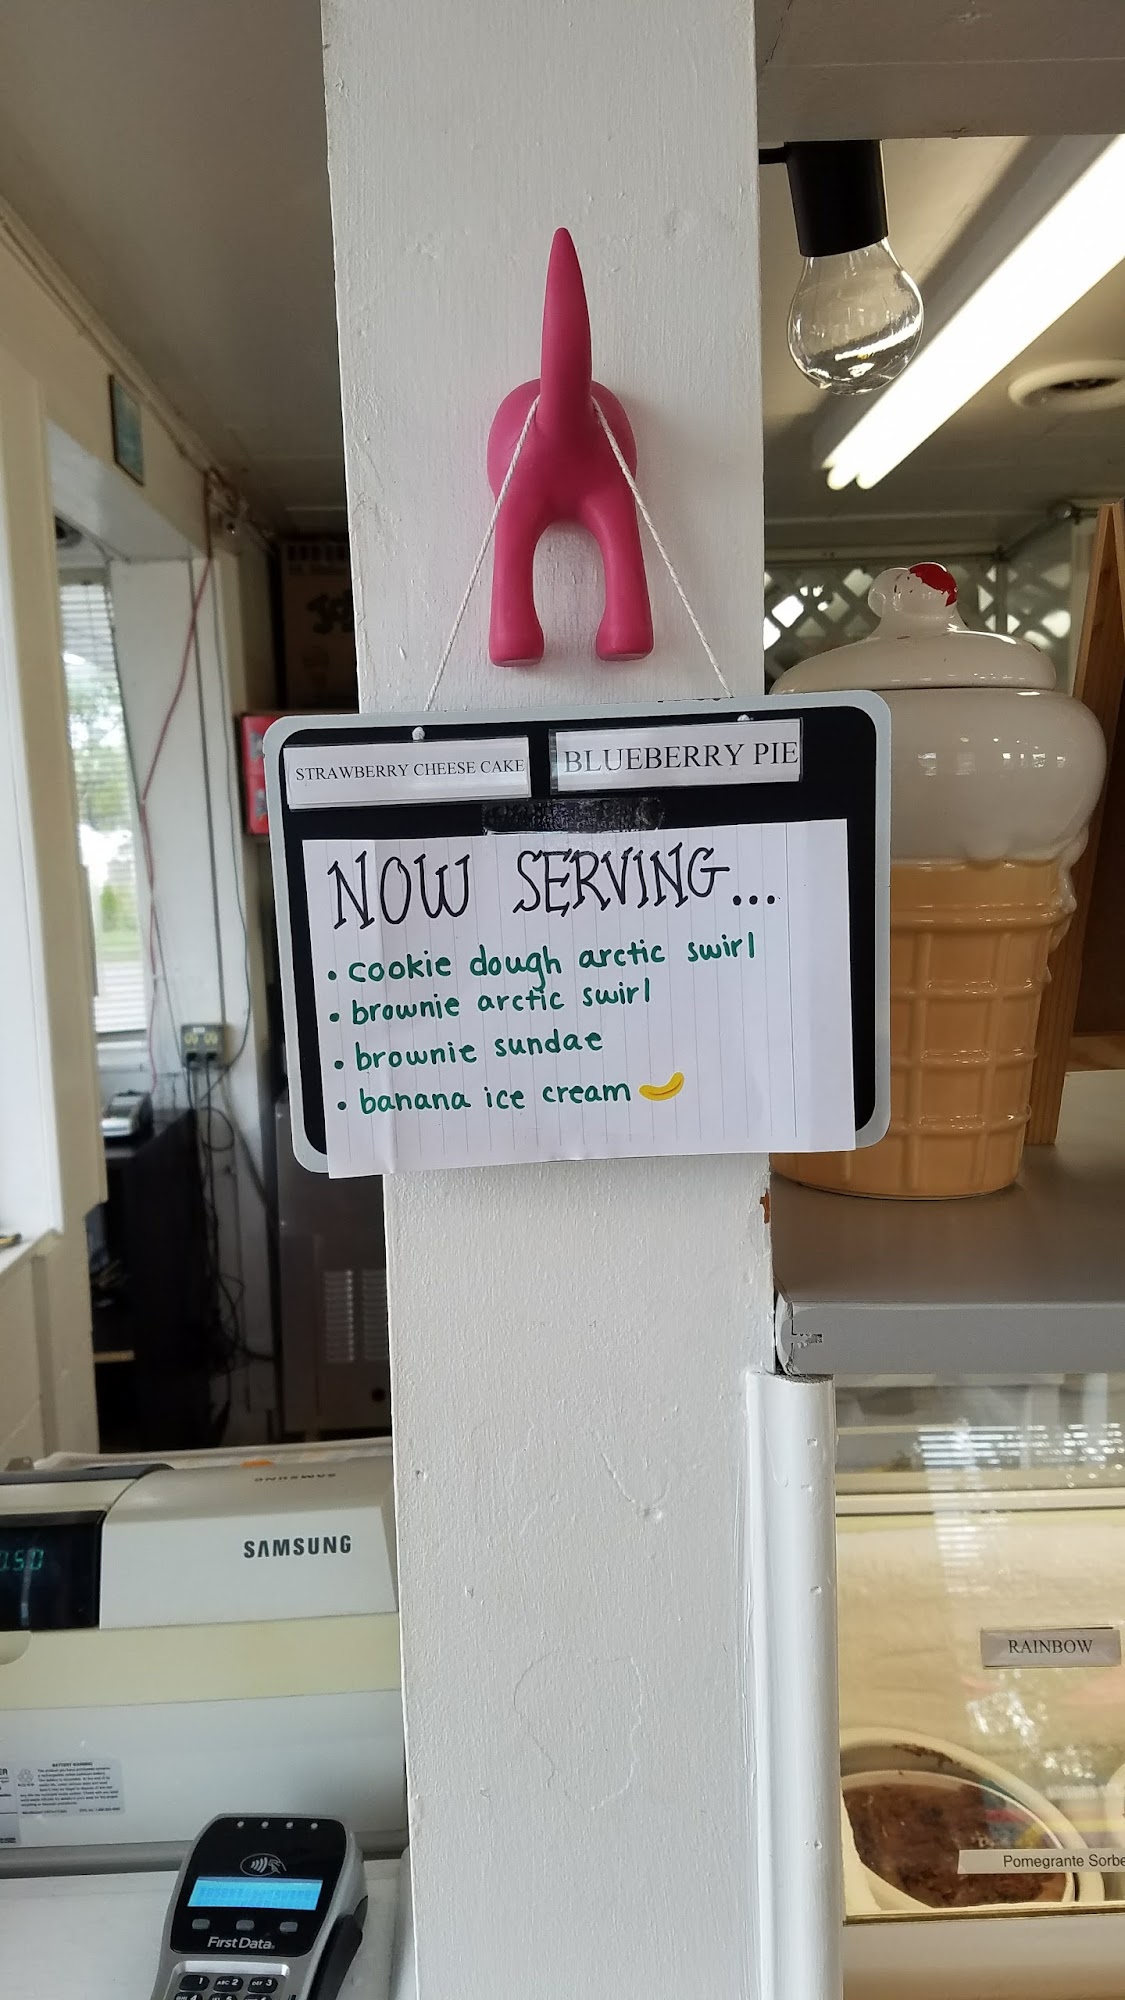 STRAWBERRY CHEESE CAKE
BLUEBERRY PIE
NOW SERVING...
• cookie dough arctic swirl
• brownie arctic swirl
• brownie sundae
• banana ice cream
SAMSUNG
SAMSUNG
RAINBOW
Pomegrante Sorbe
BATTERY WARNING
First Data
1 ABC 2 DEF 3